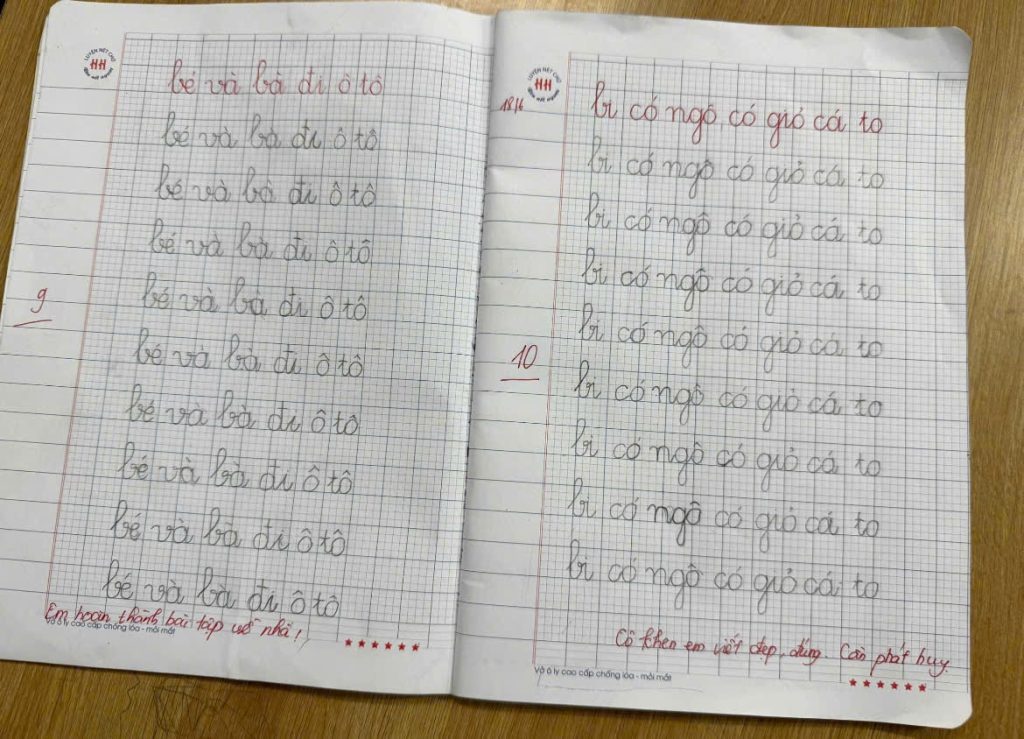 LUYỆN NÉT CHỮ
HH
bé và bà đi ô tô
bé và bà đi ô tô
bé và bà đi ô tô
bé và bà đi ô tô
bé và bà đi ô tô
9
bé và bà đi ô tô
bé và bà đi ô tô
bé và bà đi ô tô
bé và bà đi ô tô
bé và bà đi ô tô
Em hoàn thành bài tập về nhà!
Vở ô ly cao cấp chống lóa - mỏi mắt
LUYỆN NÉT CHỮ
HH
18/6
bi có ngô có giỏ cá to
bi có ngô có giỏ cá to
bi có ngô có giỏ cá to
bi có ngô có giỏ cá to
bi có ngô có giỏ cá to
10
bi có ngô có giỏ cá to
bi có ngô có giỏ cá to
bi có ngô có giỏ cá to
bi có ngô có giỏ cá to
Cô khen em viết đẹp, đúng. Cần phát huy
Vở ô ly cao cấp chống lóa - mỏi mắt